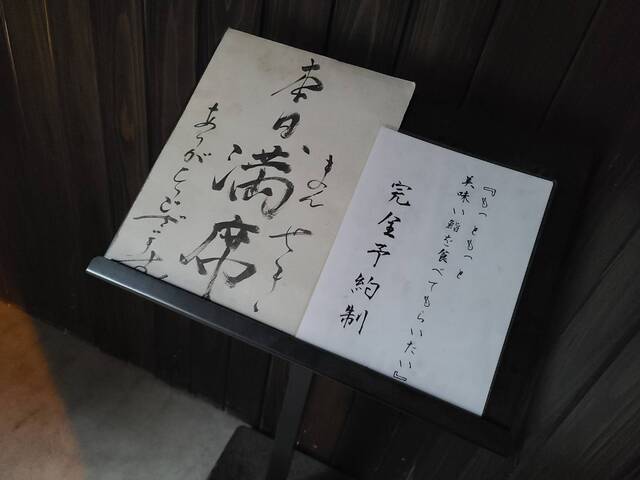 本日、満席
まん せき
ありがとうございます
『もっともっと
美味い鮨を食べてもらいたい』
完全予約制